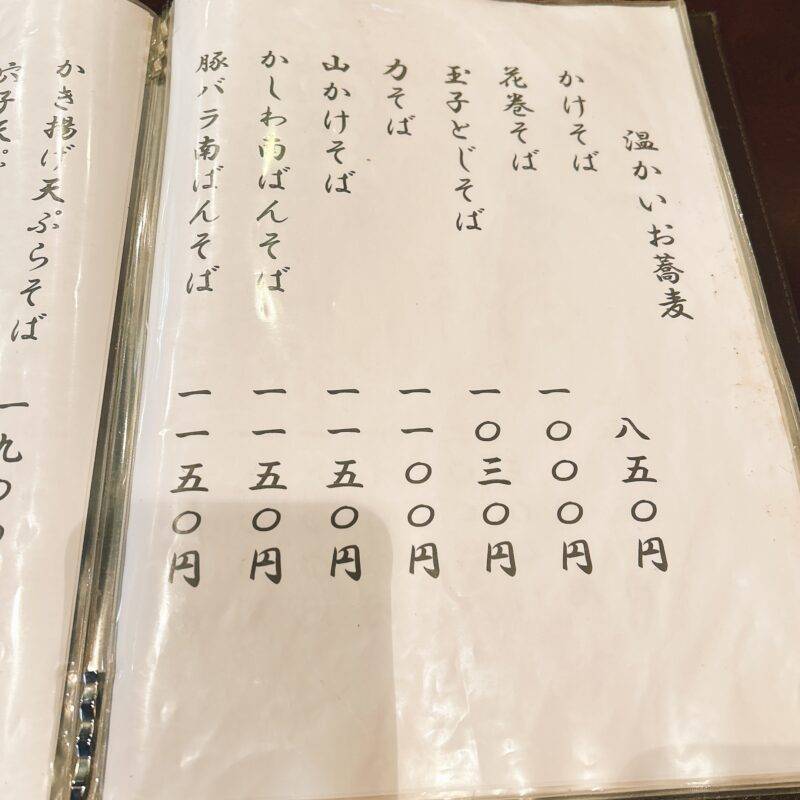 温かいお蕎麦
かけそば 八五〇円
花巻そば 一〇〇〇円
玉子とじそば 一〇三〇円
力そば 一一〇〇円
山かけそば 一一五〇円
かしわ南ばんそば 一一五〇円
豚バラ南ばんそば 一一五〇円
かき揚げ天ぷらそば 一九〇〇